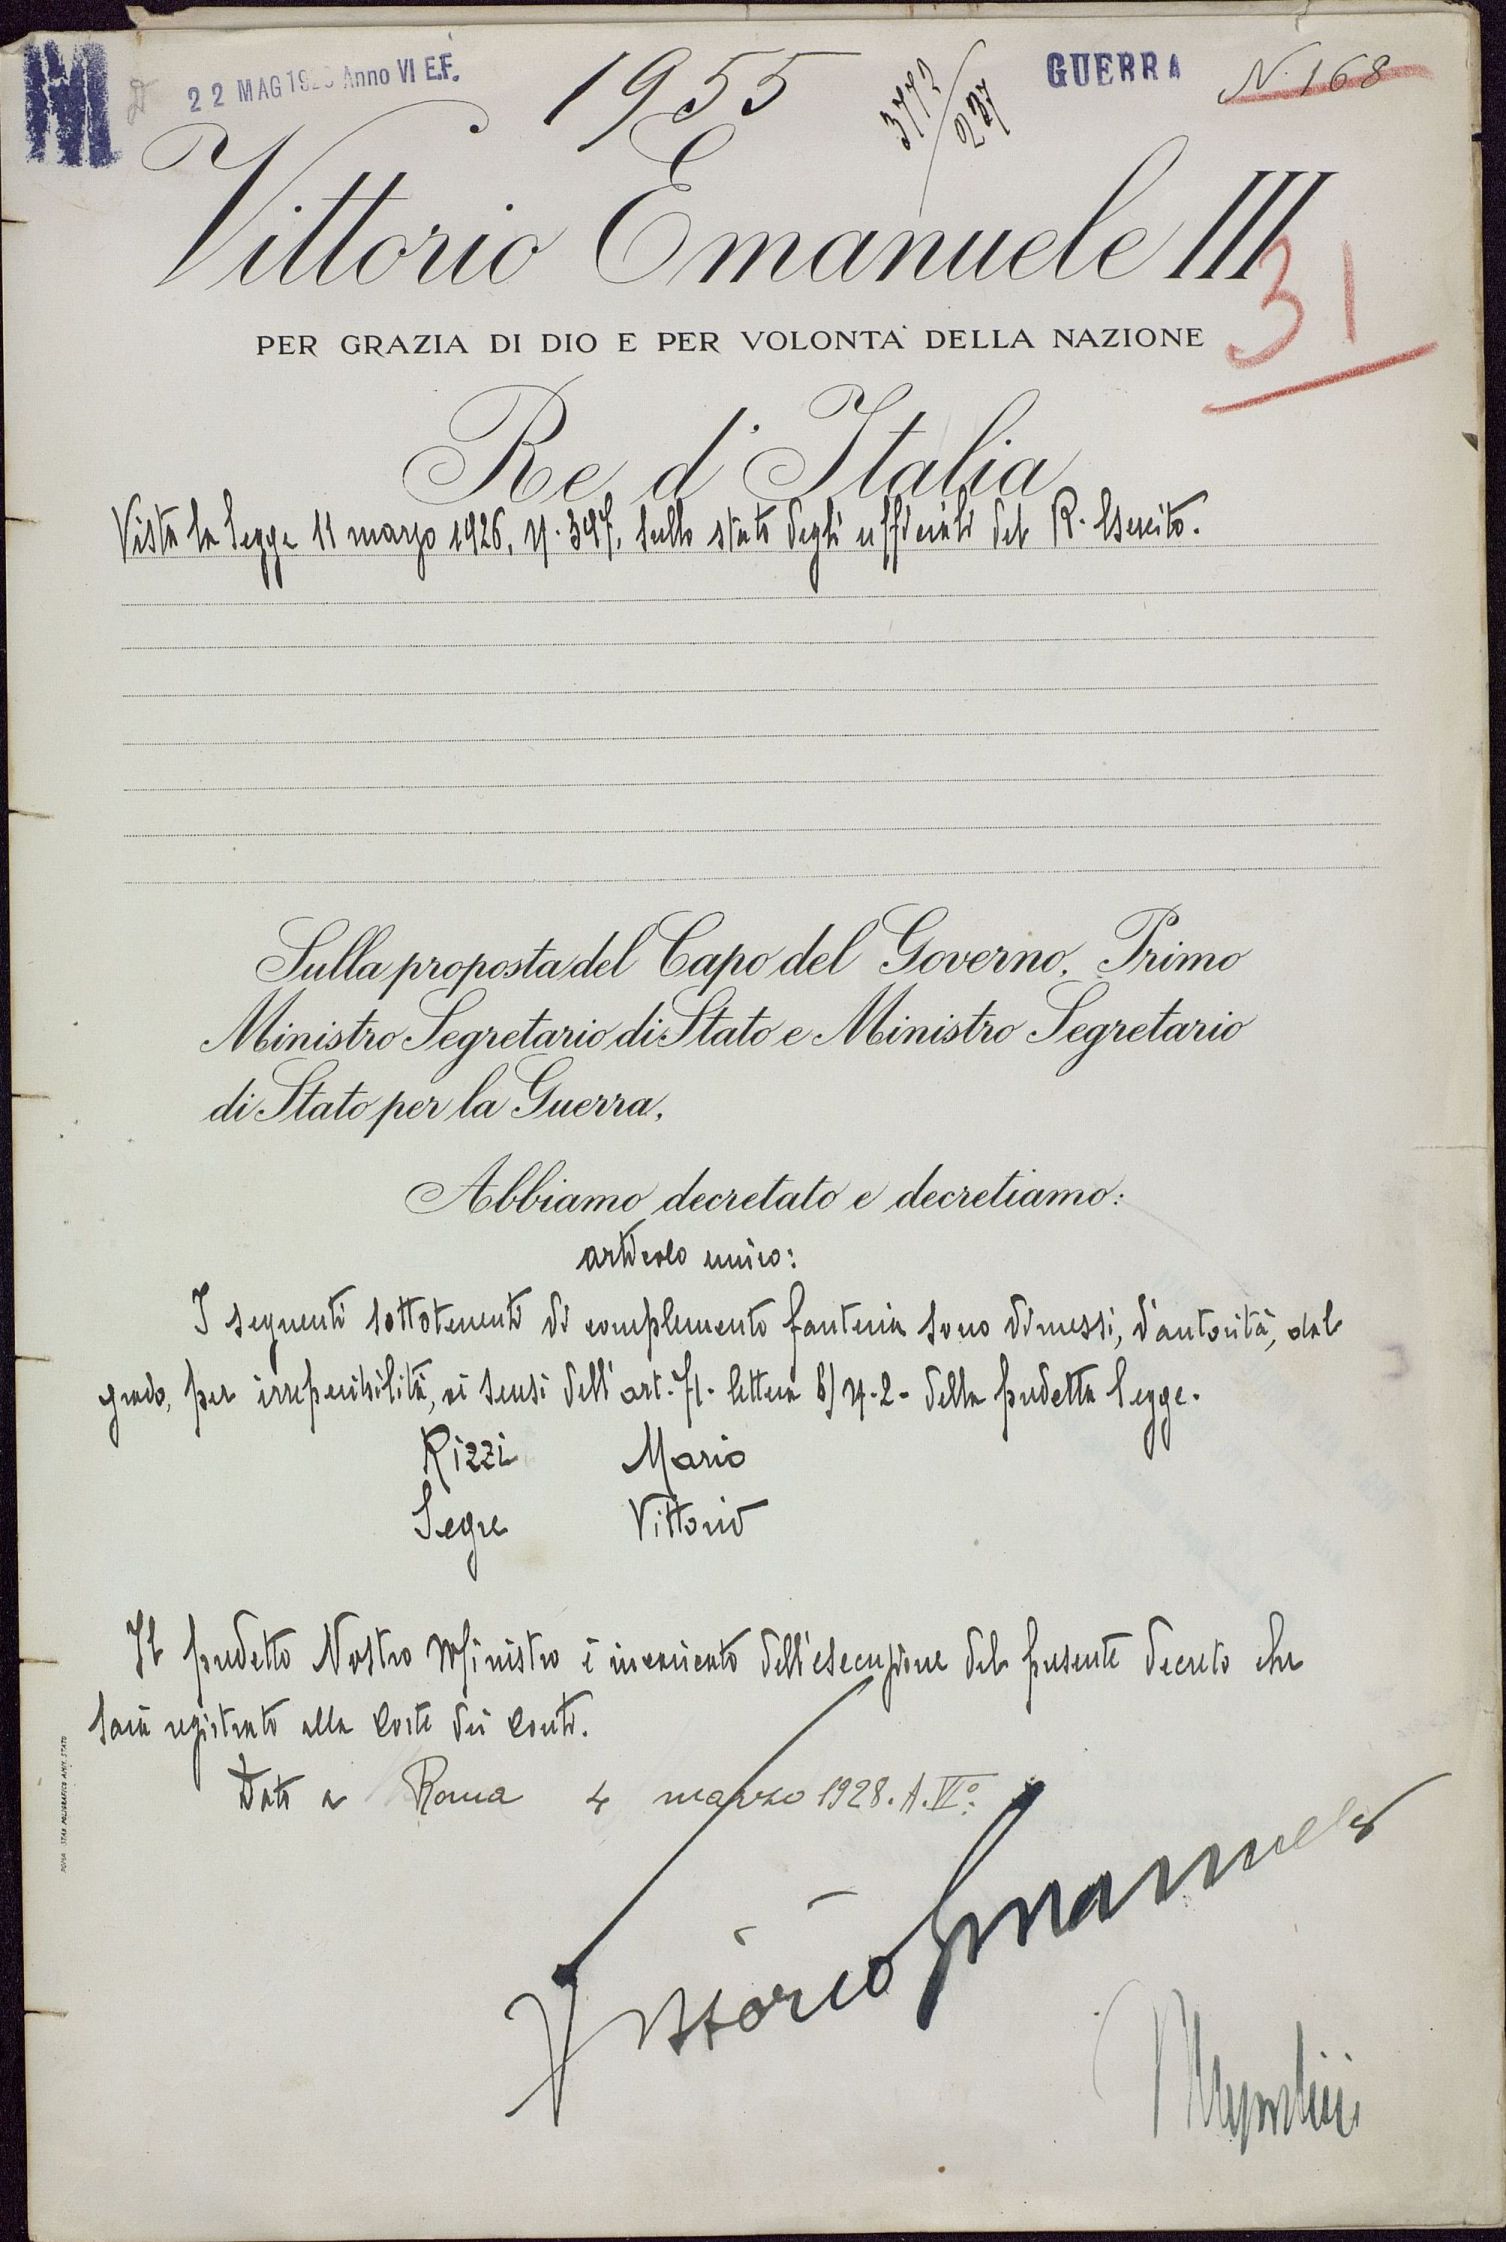 M
22 MAG 192 Anno VI E.F.
1955
3772/237
GUERRA
N. 168
Vittorio Emanuele III
31
PER GRAZIA DI DIO E PER VOLONTA' DELLA NAZIONE
Re d'Italia
Vista la legge 11 marzo 1926, n. 397, sullo stato degli ufficiali del R. Esercito.
Sulla proposta del Capo del Governo, Primo
Ministro Segretario di Stato e Ministro Segretario
di Stato per la Guerra,
Abbiamo decretato e decretiamo:
articolo unico:
I seguenti sottotenenti di complemento fanteria sono dimessi, d'autorità, dal
grado, per irreperibilità, ai sensi dell'art. 71 - lettera b) n. 2 - della predetta legge.
Rizzi Mario
Segre Vittorio
Il predetto Nostro Ministro è incaricato dell'esecuzione del presente decreto che
sarà registrato alla Corte dei Conti.
Dato a Roma 4 marzo 1928. A. VI°.
Vittorio Emanuele
Mussolini